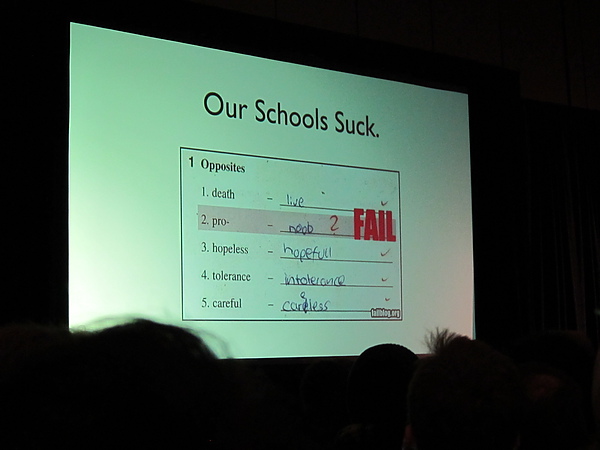 Our Schools Suck.
1 Opposites
1. death – live
2. pro- – noob 2 FAIL
3. hopeless – hopefull
4. tolerance – intolerance
5. careful – careless
failblog.org